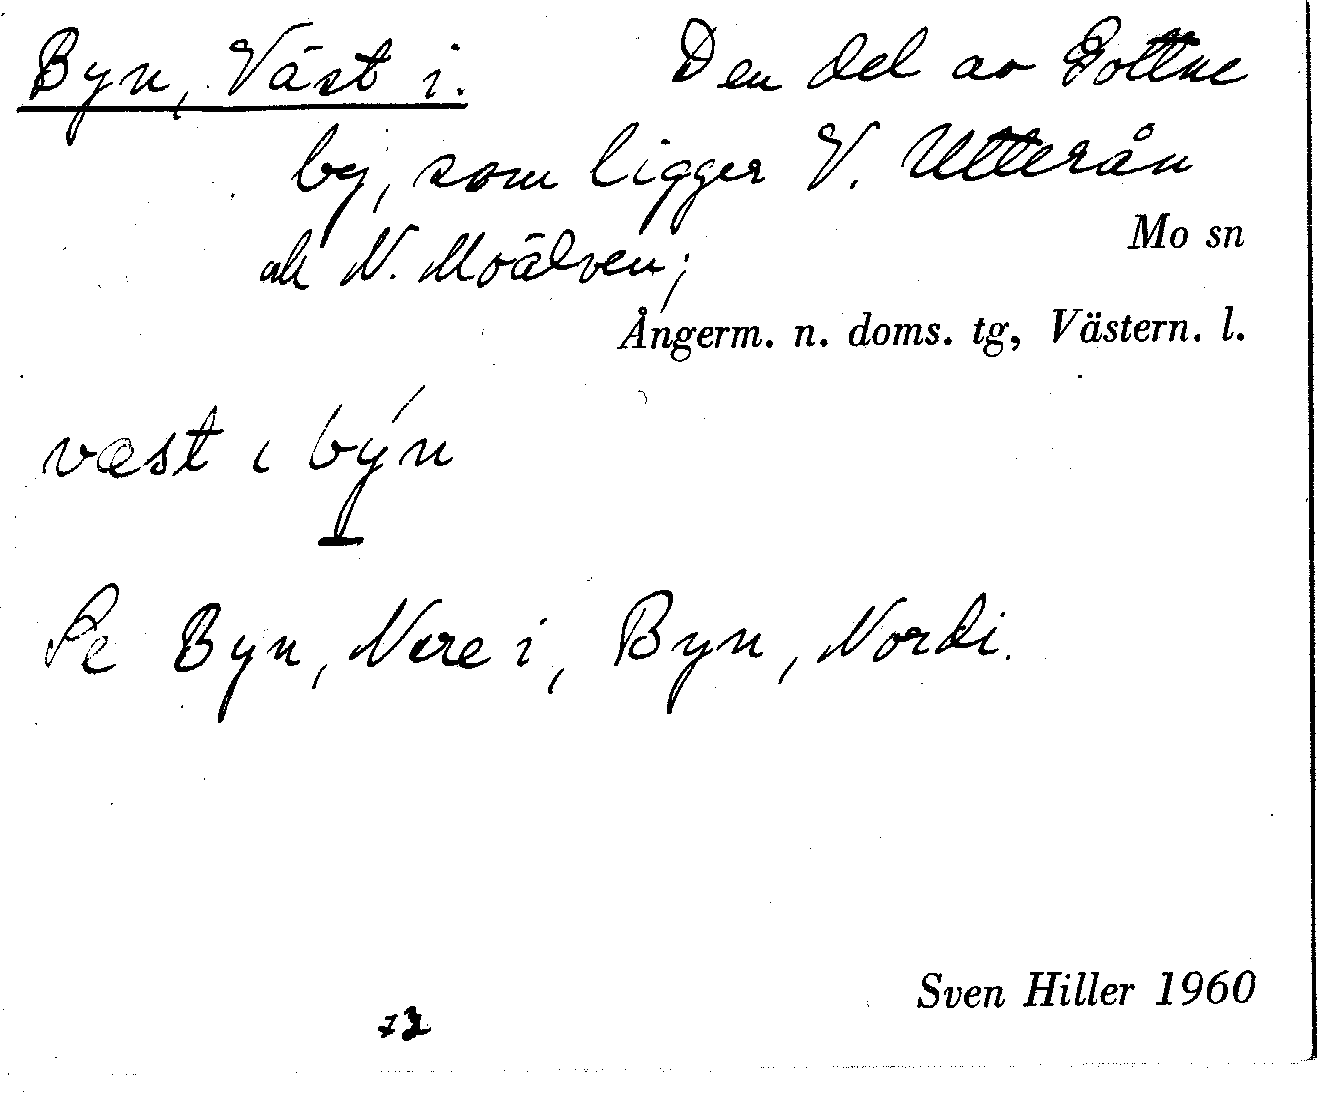 Byn, Väst i. Den del av Gottne
by, som ligger V. Utterån
och N. Moälven;
Mo sn
Ångerm. n. doms. tg, Västern. l.
væst ι býn
Se Byn, Nere i, Byn, Nord i.
Sven Hiller 1960